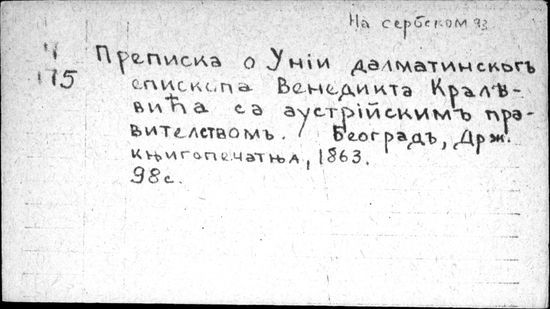 На сербском яз.
175
Преписка о Унiи далматинскогъ
епископа Венедикта Кралѣ-
вића са аустрiйскимъ пра-
вителствомъ. Београдъ, Држ.
књигопечатња, 1863.
98 с.